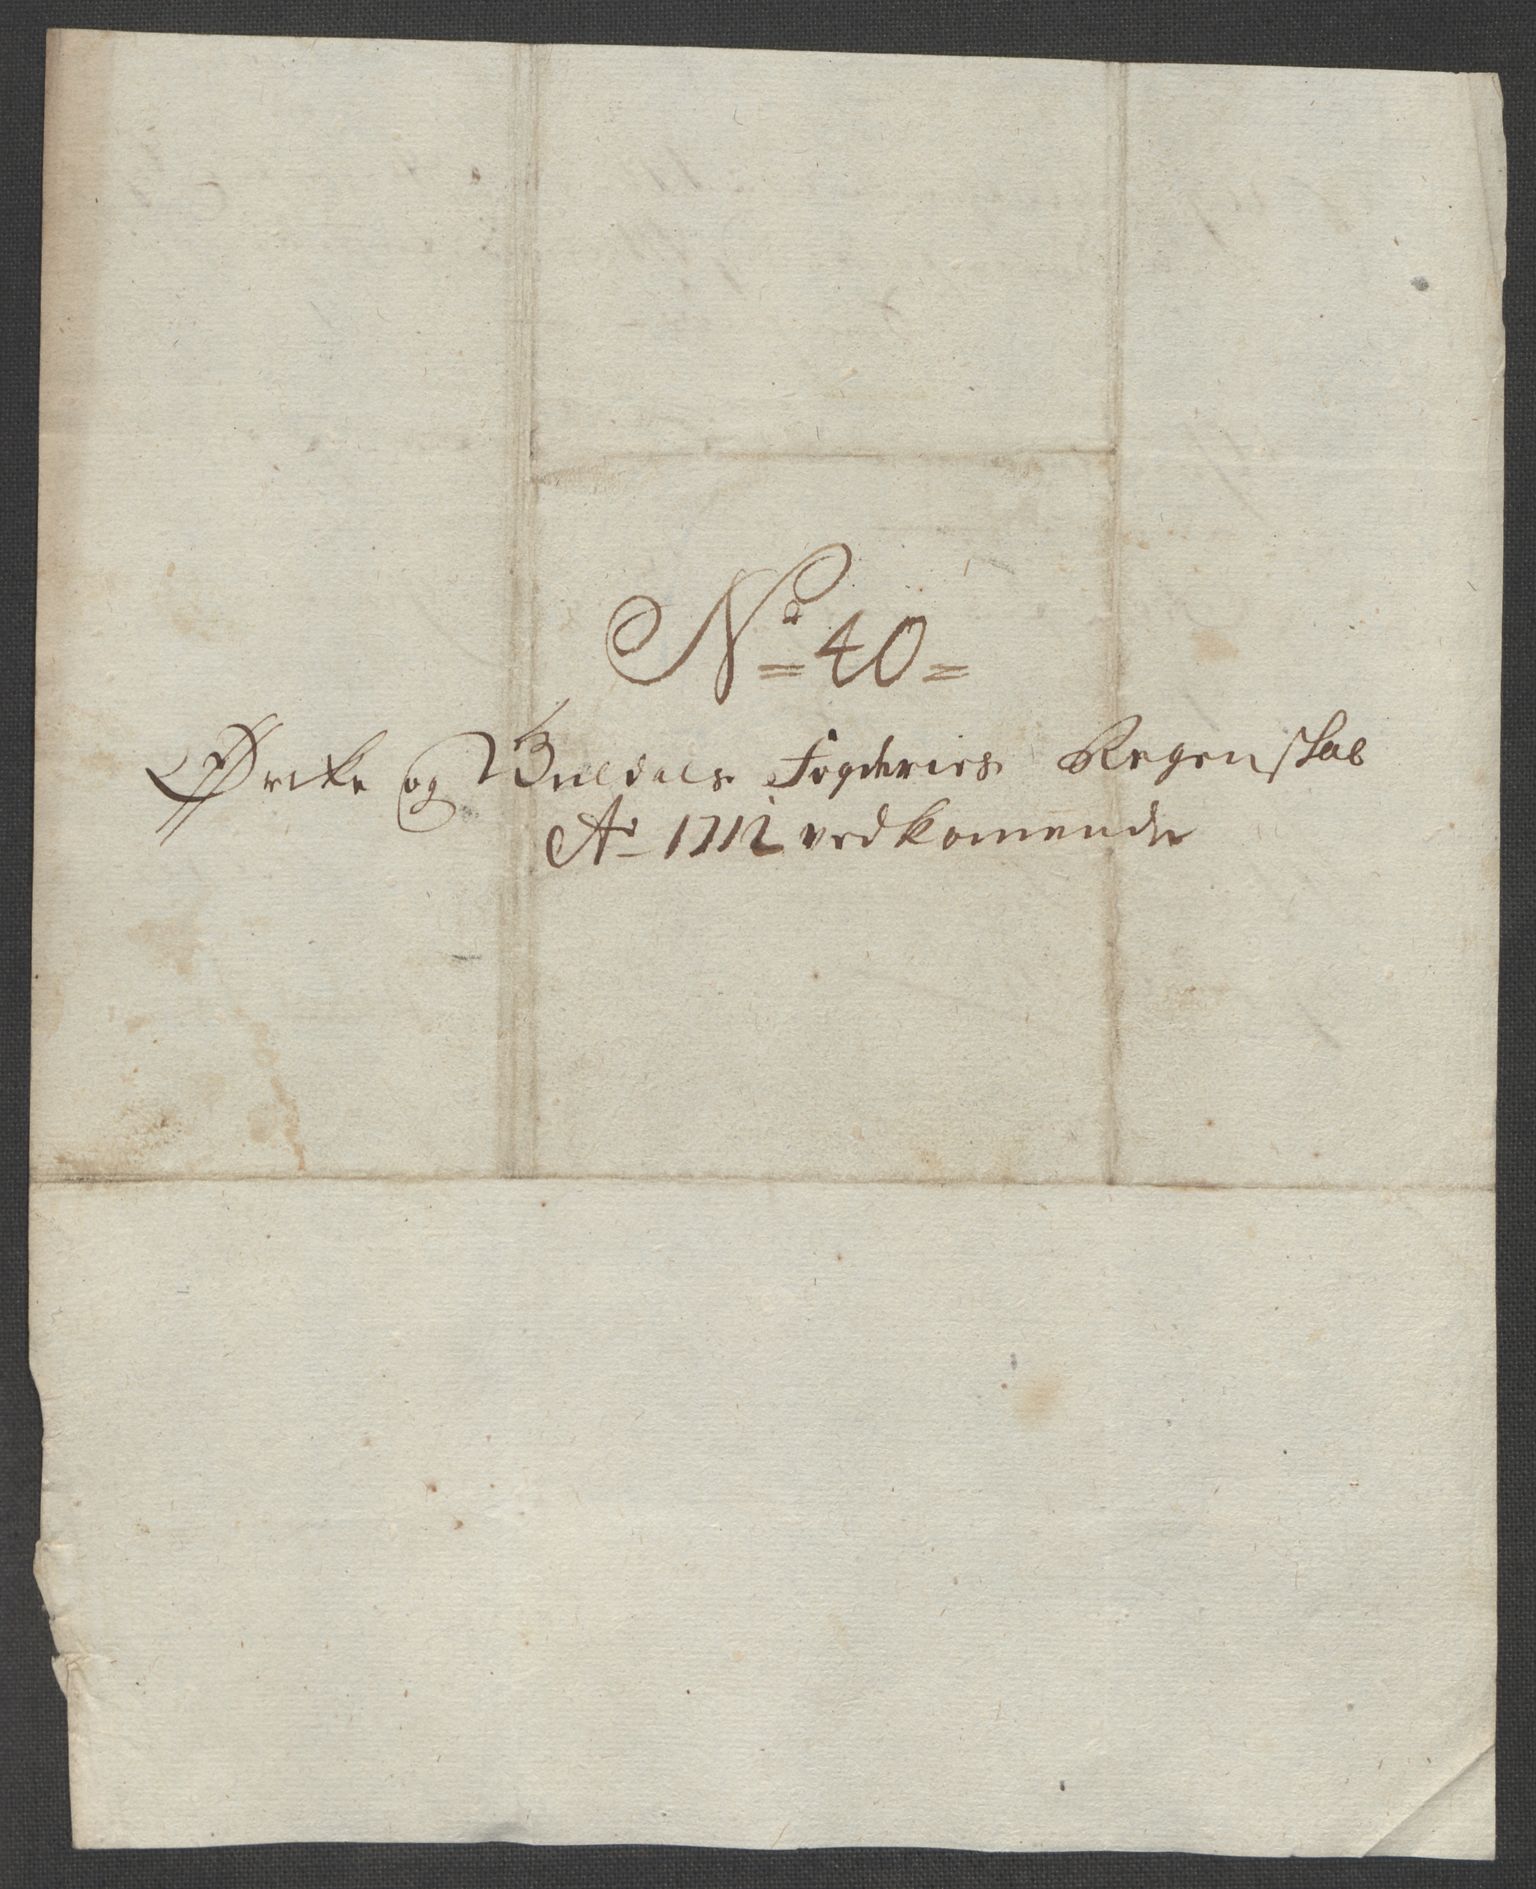 No 40
Ørcke og Guldals Fogderies Regenskab
Ao 1712 vedkomende